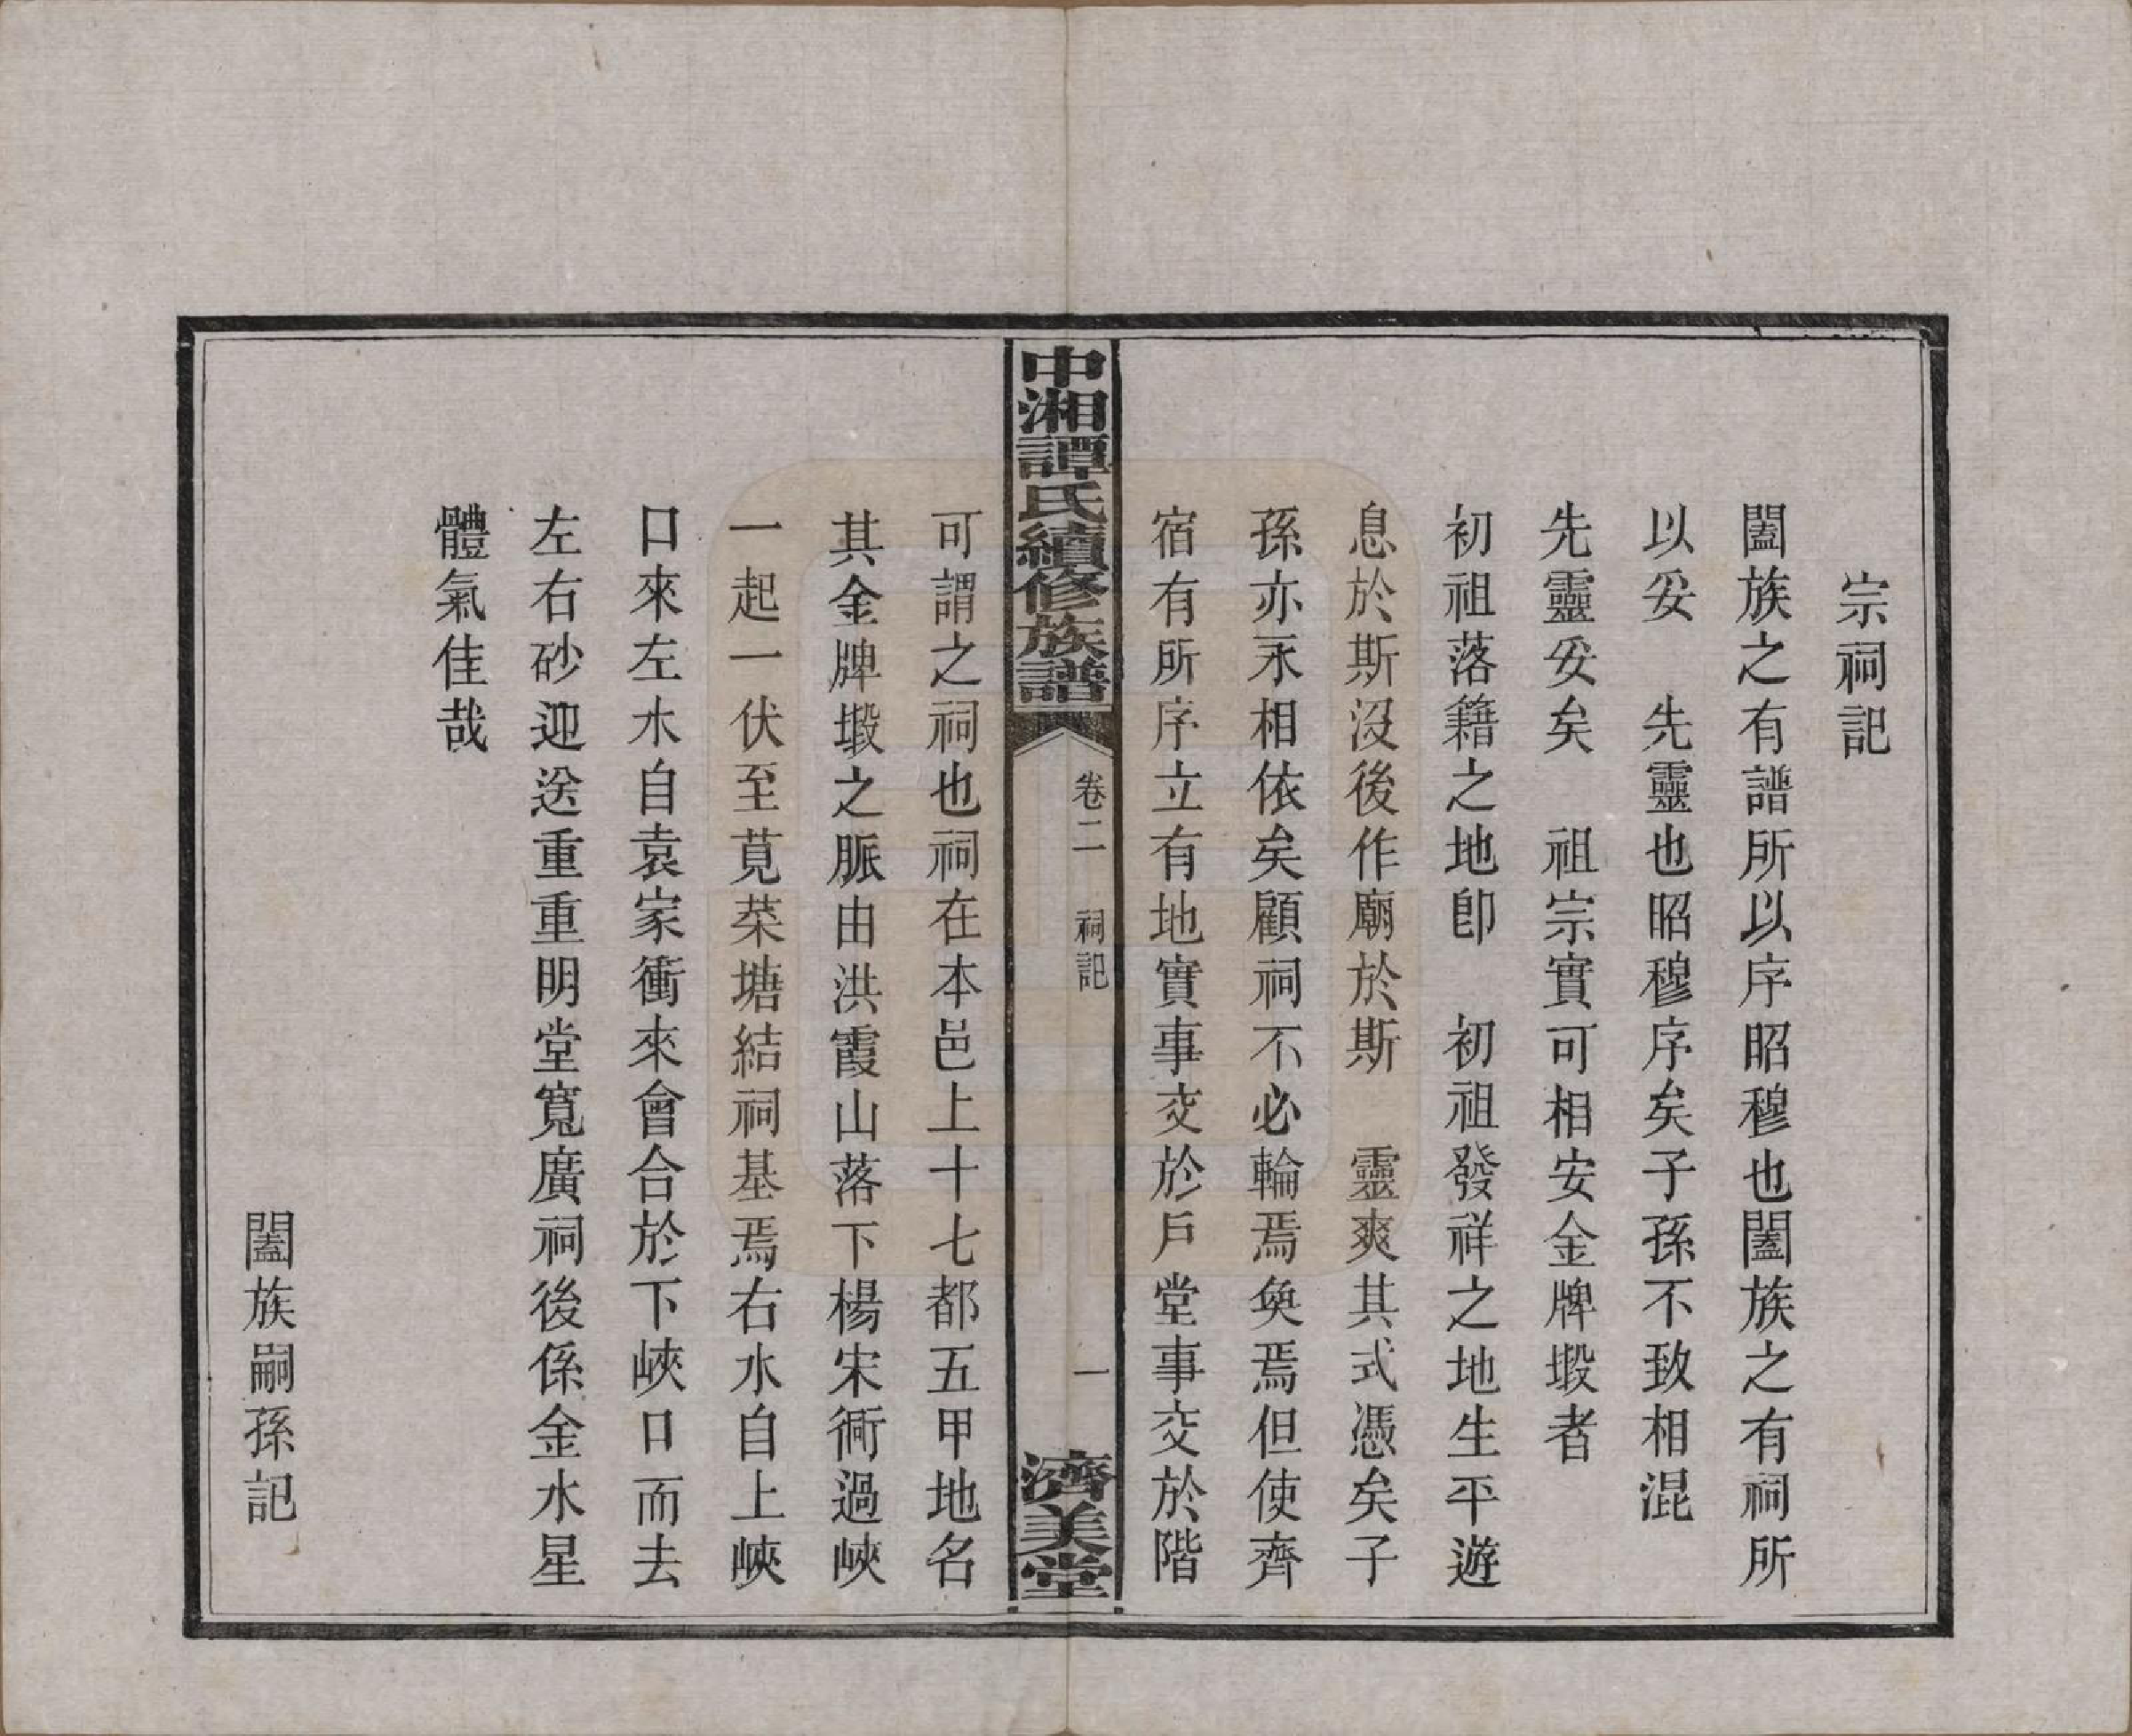 宗祠記
闔族之有譜所以序昭穆也闔族之有祠所
以妥　先靈也昭穆序矣子孫不致相混
先靈妥矣　祖宗實可相安金牌塅者
初祖落籍之地卽　初祖發祥之地生平遊
息於斯沒後作廟於斯　靈爽其式憑矣子
孫亦永相依矣顧祠不必輪焉奐焉但使齊
宿有所序立有地實事交於戶堂事交於階
中湘譚氏續修族譜　卷二　祠記　一　濟美堂
可謂之祠也祠在本邑上十七都五甲地名
其金牌塅之脈由洪霞山落下楊宋衕過峽
一起一伏至莧菜塘結祠基焉右水自上峽
口來左水自袁家衝來會合於下峽口而去
左右砂迎送重重明堂寬廣祠後係金水星
體氣佳哉
闔族嗣孫記